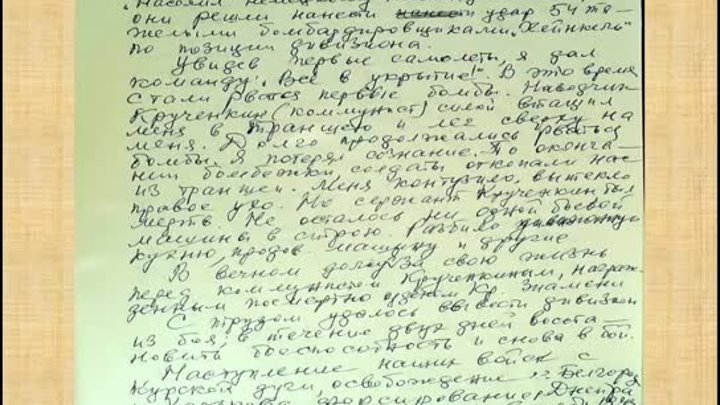 они решли нанести нанести удар 54 тя-
желыми бомбардировщиками „Хейнкель"
по позиции дивизиона.
Увидев первые самолеты, я дал
команду: „Все в укрытие!". В это время
стали рватся первые бомбы. Наводчик
Крученкин (коммунист) силой втащил
меня в траншею и лег сверху на
меня. Долго продолжались рваться
бомбы. Я потерял сознание. По оконча-
нии бомбежки солдаты откопали нас
из траншеи. Меня контузило, вытекло
правое ухо. Но сержант Крученкин был
мертв. Не осталось ни одной боевой
машины в строю. Разбило
кухню, продов. машину и другие
В вечном долгу за свою жизнь
перед коммунистом Крученкиным, награж-
денным посмертно орденом Кр. Знамени
С трудом удалось вывести дивизион
из боя, в течение двух дней восста-
новить боеспособность и снова в бой.
Наступление наших войск с
Курской дуги, освобождение г. Белгород
форсирование Днепра